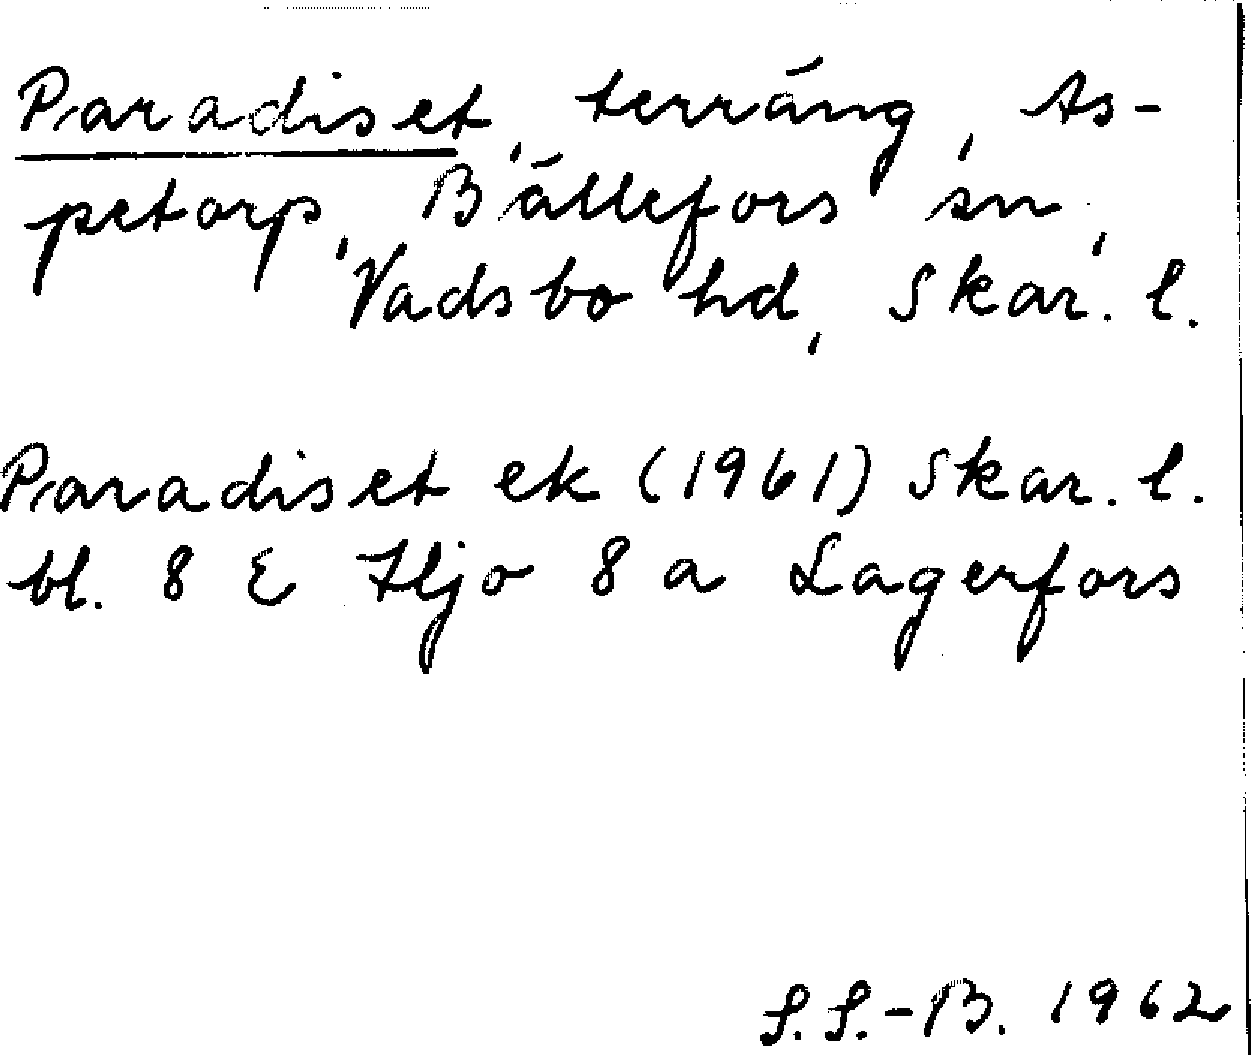 Paradiset, terräng, As-
petorp, Bällefors sn,
Vadsbo hd, Skar. l.
Paradiset ek (1961) Skar. l.
bl. 8 E Hjo 8 a Lagerfors
S.S.-B. 1962